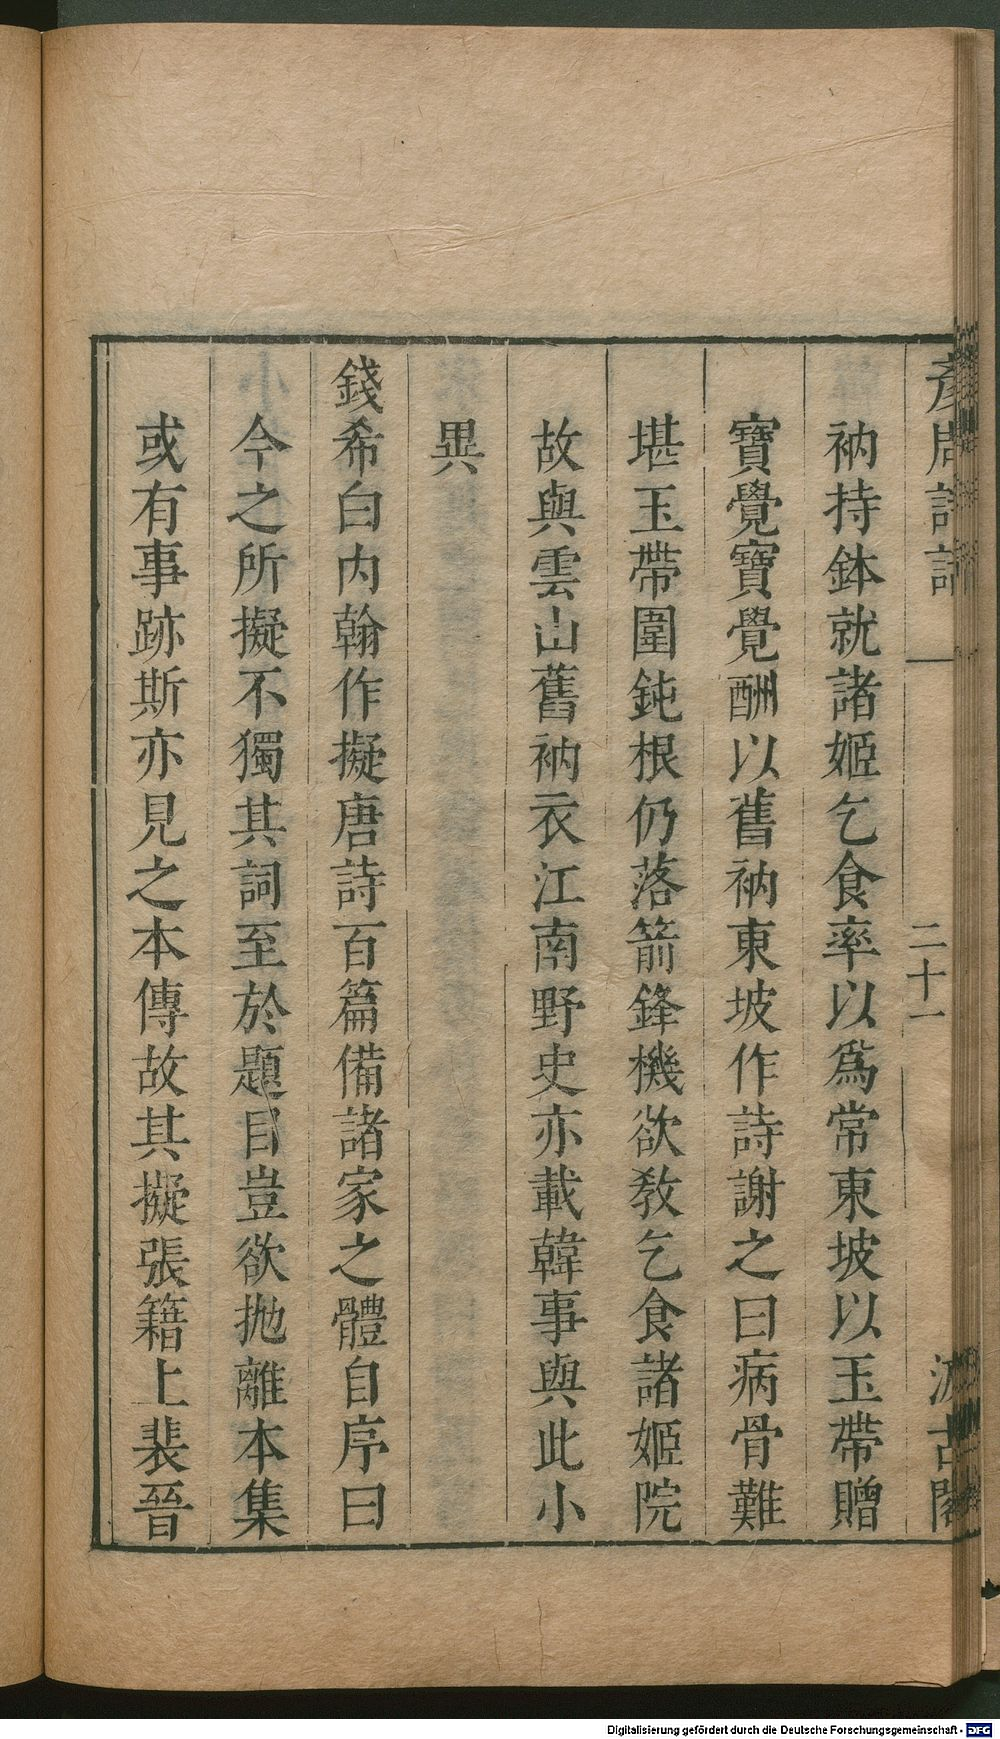 彥周詩話
二十一
汲古閣
衲持鉢就諸姬乞食率以爲常東坡以玉帶贈
寶覺寶覺酬以舊衲東坡作詩謝之曰病骨難
堪玉帶圍鈍根仍落箭鋒機欲教乞食諸姬院
故與雲山舊衲衣江南野史亦載韓事與此小
異
錢希白內翰作擬唐詩百篇備諸家之體自序曰
今之所擬不獨其詞至於題目豈欲拋離本集
或有事跡斯亦見之本傳故其擬張籍上裴晉
Digitalisierung gefördert durch die Deutsche Forschungsgemeinschaft - DFG